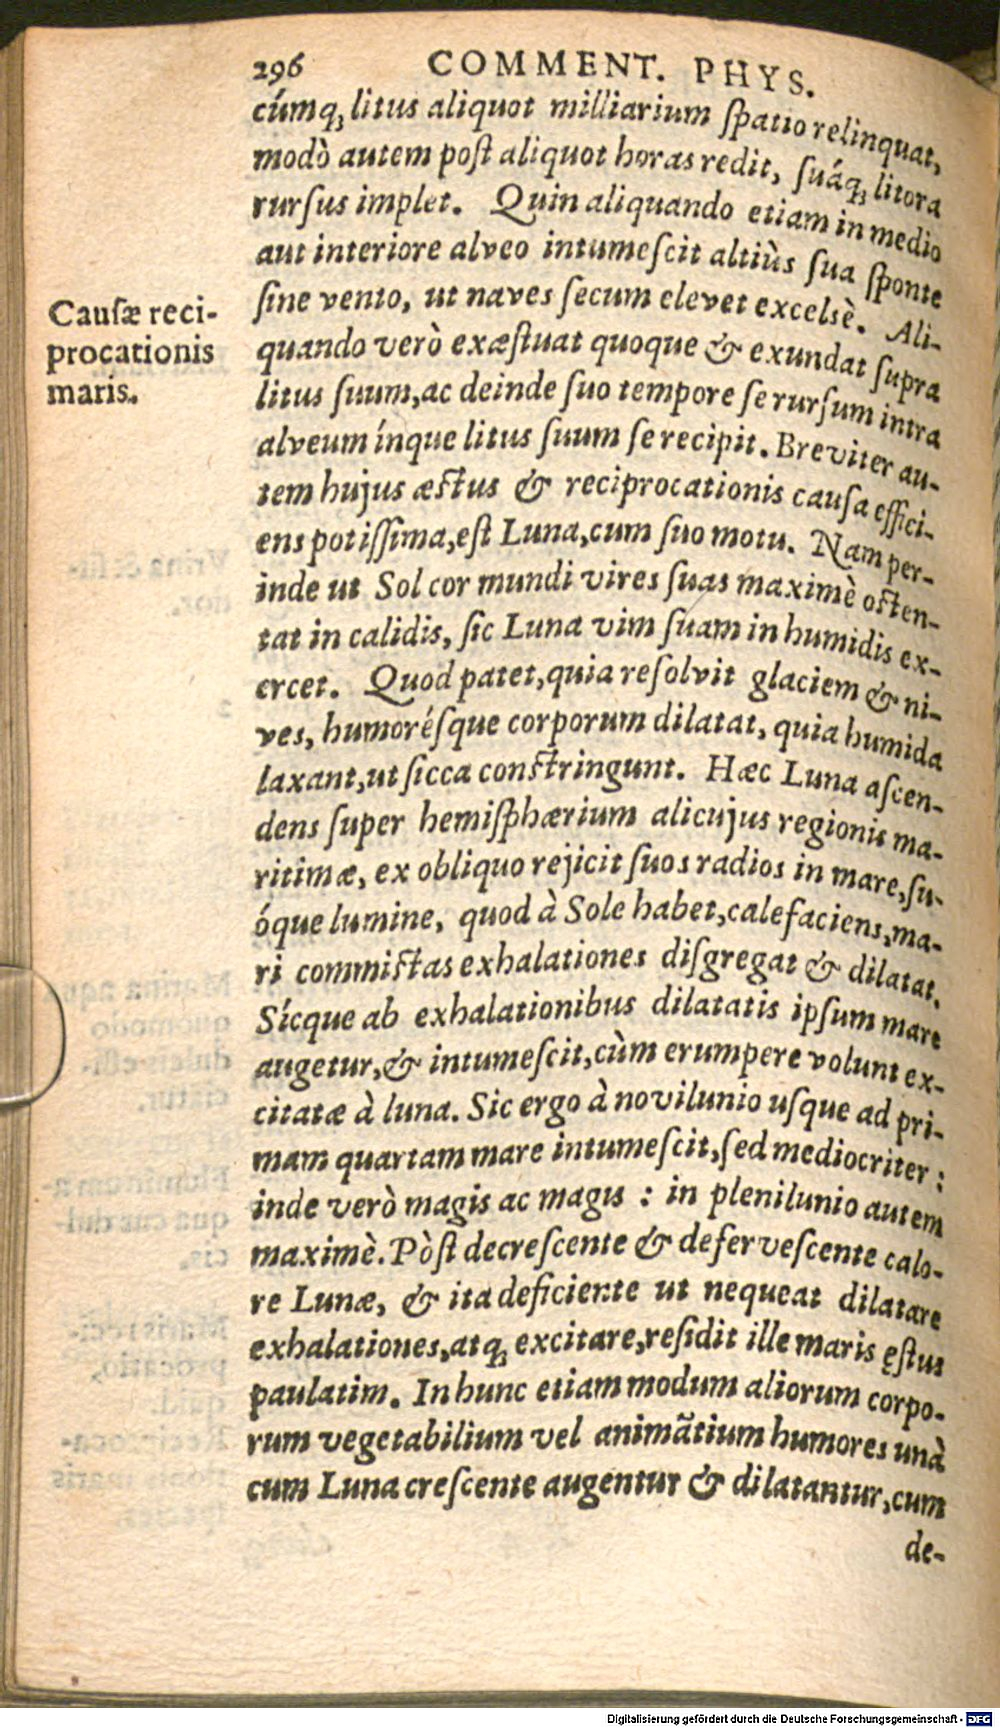 296 COMMENT. PHYS.
cúmq́ꝫ litus aliquot milliarium ſpatio relinquat,
modò autem poſt aliquot horas redit, ſuáqꝫ litora
rurſus implet. Quin aliquando etiam in medio
aut interiore alveo intumeſcit altiùs ſua ſponte
ſine vento, ut naves ſecum elevet excelsè. Ali-
quando verò exæſtuat quoque & exundat ſupra
litus ſuum, ac deinde ſuo tempore ſe rurſum intra
alveum ínque litus ſuum ſe recipit. Breviter au-
tem hujus æſtus & reciprocationis cauſa effici-
ens potiſſima, eſt Luna, cum ſuo motu. Nam per-
inde ut Sol cor mundi vires ſuas maximè oſten-
tat in calidis, ſic Luna vim ſuam in humidis ex-
ercet. Quod patet, quia reſolvit glaciem & ni-
ves, humoréſque corporum dilatat, quia humida
laxant, ut ſicca conſtringunt. Hæc Luna aſcen-
dens ſuper hemiſphærium alicujus regionis ma-
ritimæ, ex obliquo rejicit ſuos radios in mare, ſu-
óque lumine, quod à Sole habet, calefaciens, ma-
ri commiſtas exhalationes diſgregat & dilatat.
Sícque ab exhalationibus dilatatis ipſum mare
augetur, & intumeſcit, cùm erumpere volunt ex-
citatæ à luna. Sic ergo à novilunio uſque ad pri-
mam quartam mare intumeſcit, ſed mediocriter :
inde verò magis ac magis : in plenilunio autem
maximè. Pòſt decreſcente & defervеſcente calo-
re Lunæ, & ita deficiente ut nequeat dilatare
exhalationes, atqꝫ excitare, reſidit ille maris ęſtus
paulatim. In hunc etiam modum aliorum corpo-
rum vegetabilium vel animãtium humores unà
cum Luna creſcente augentur & dilatantur, cum
de-
Cauſæ reci-
procationis
maris.
Digitalisierung gefördert durch die Deutsche Forschungsgemeinschaft - DFG